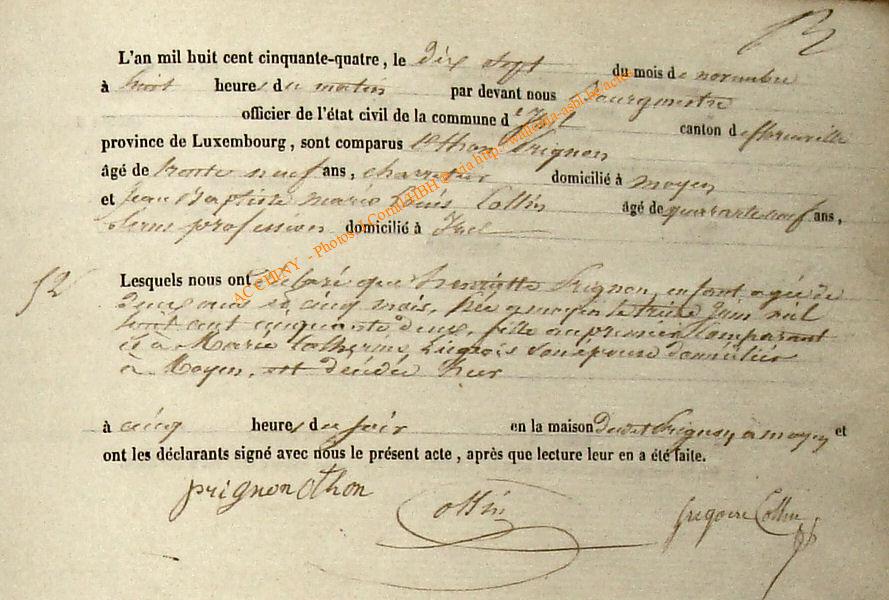 L'an mil huit cent cinquante-quatre, le dix sept du mois de novembre
à huit heures du matin par devant nous Bourgmestre
officier de l'état civil de la commune d'Izel canton de florenville
province de Luxembourg, sont comparus Othon Prignon
âgé de trente neuf ans, charretier domicilié à moyen
et Jean Baptiste marie Louis Collin âgé de quarante neuf ans,
sans profession domicilié à Izel
52
Lesquels nous ont déclaré que henriette Prignon, enfant agée de
deux ans et cinq mois, née a moyen le treize juin mil
huit cent cinquante deux, fille au premier Comparant
et à Marie Catherine Liégeois son épouse domiciliée
à Moyen, est décédée hier
à cinq heures du soir en la maison dudit Prignon, a moyen et
ont les déclarants signé avec nous le présent acte, après que lecture leur en a été faite.
prignon Othon Collin Gregoire Collin
AC CHINY - Photos J. Cornil HBH @ via http://wallonia-asbl.be/actes